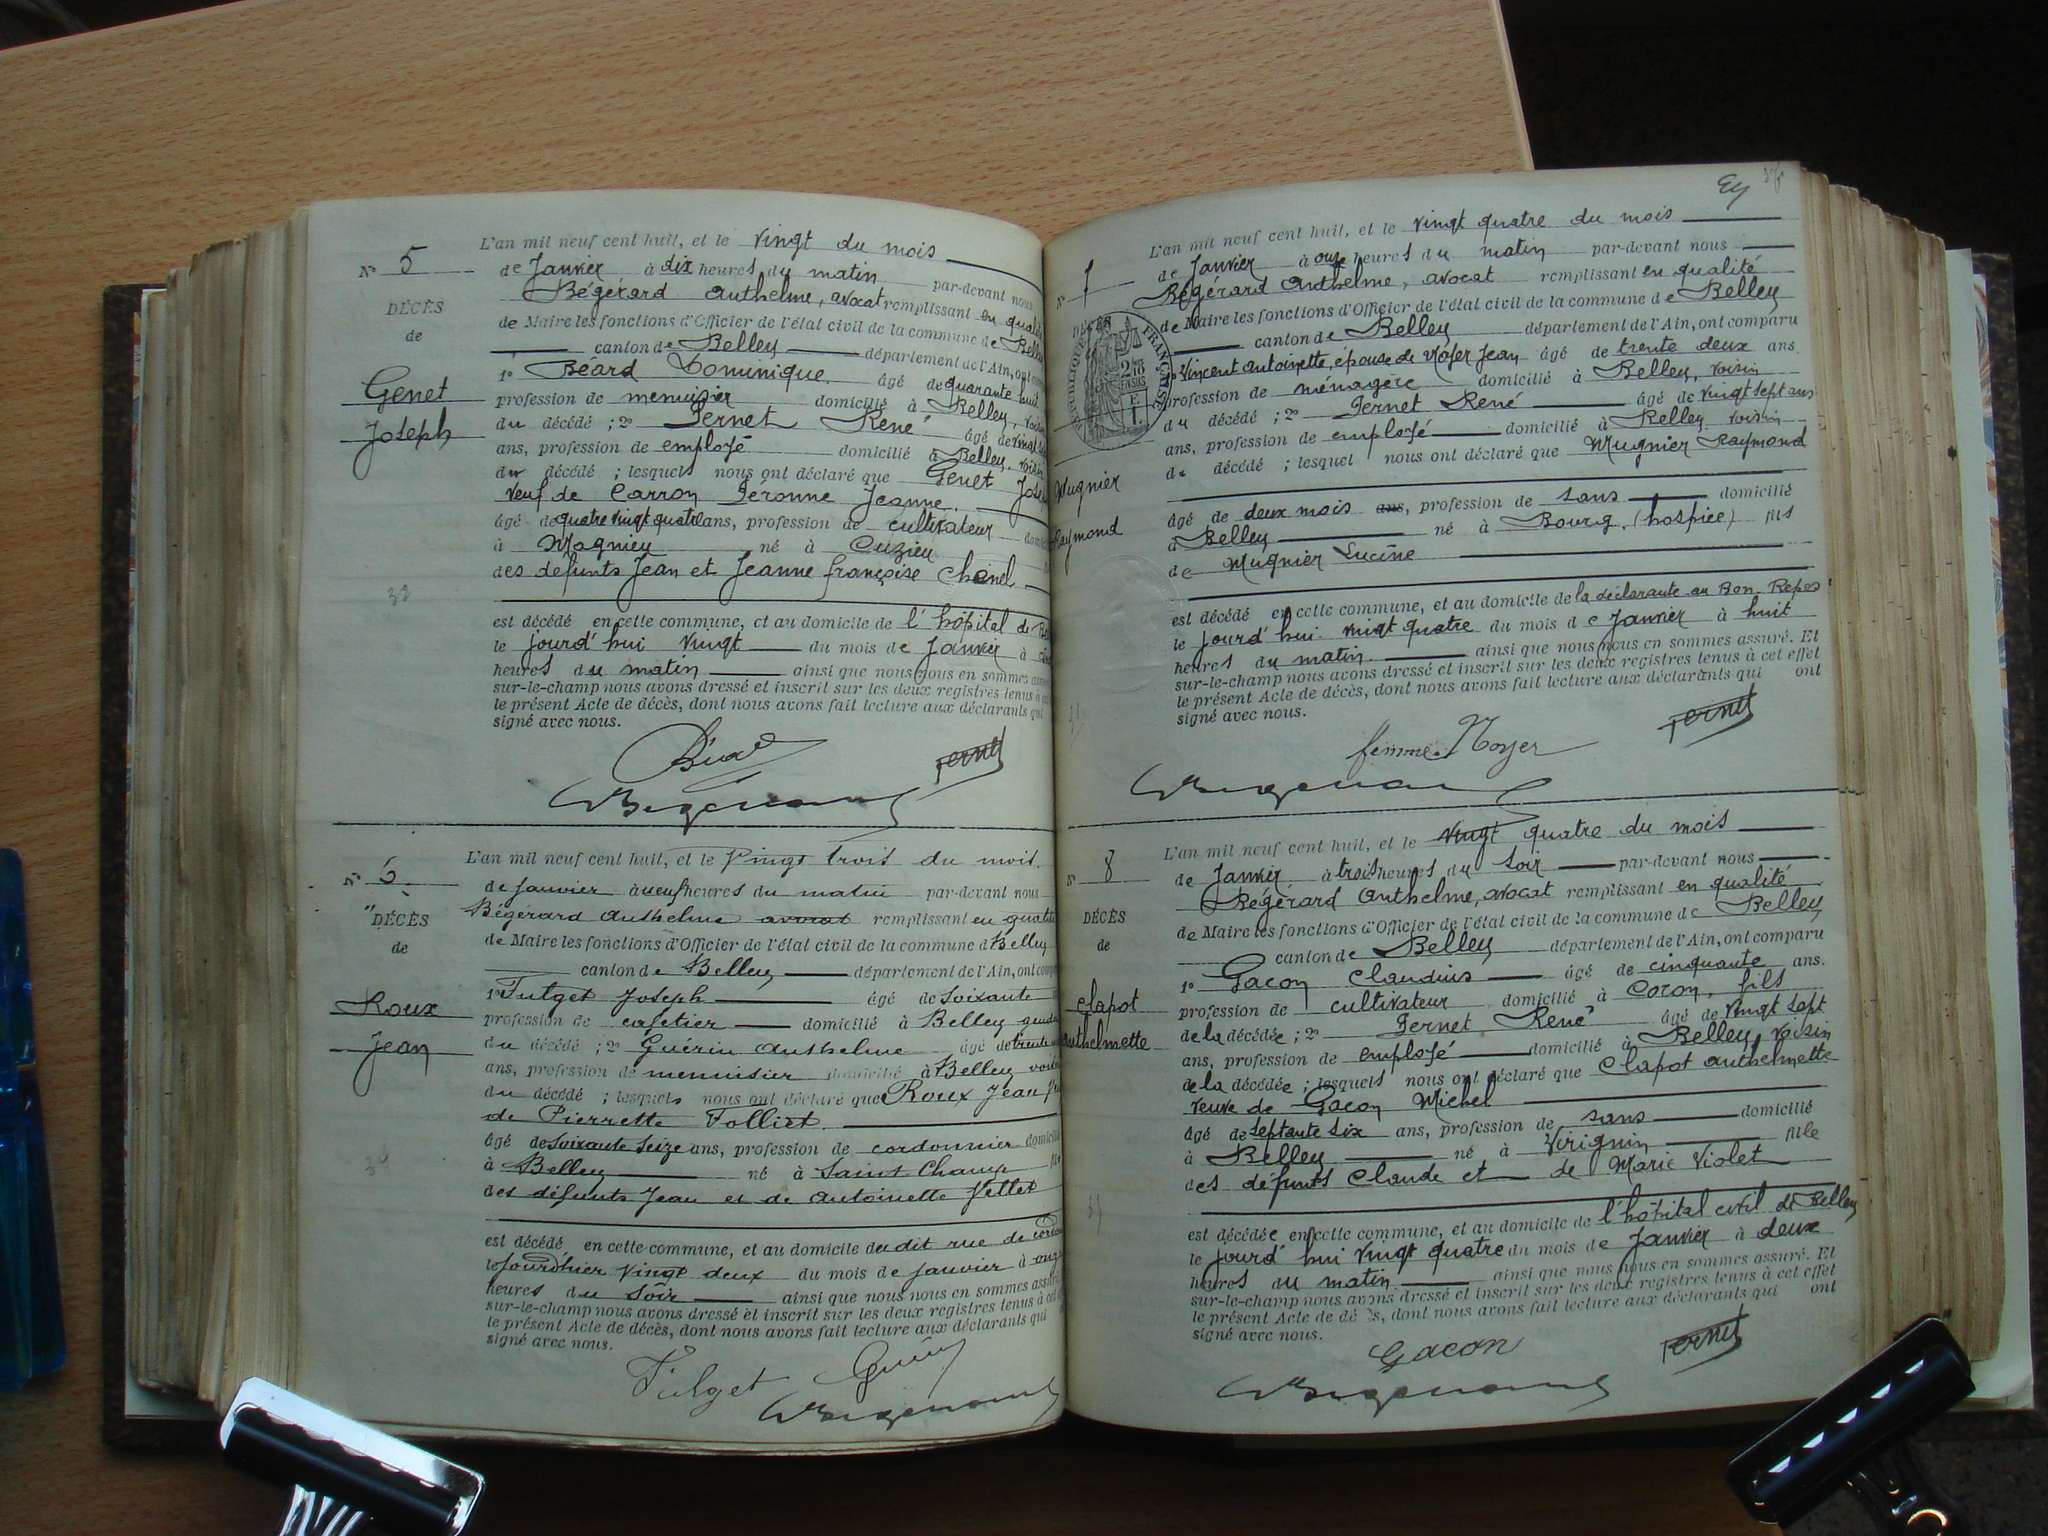 Nº 5
DÉCÈS
de
Genet
Joseph
L'an mil neuf cent huit, et le vingt du mois
de Janvier à dix heures du matin par-devant nous
Bégérard Anthelme, avocat remplissant en qualité
de Maire les fonctions d'Officier de l'état civil de la commune de
canton de Belley département de l'Ain, ont
1º Béard Dominique âgé de quarante huit
profession de menuisier domicilié à Belley,
du décédé ; 2º Fernet René âgé de
ans, profession de employé domicilié à Belley, voisin
du décédé ; lesquels nous ont déclaré que Genet
veuf de Carron Péronne Jeanne
âgé de quatre vingt quatre ans, profession de cultivateur
à Magnieu né à Cuzieu
des défunts Jean et Jeanne françoise
32
est décédé en cette commune, et au domicile de l'hôpital de
le jourd'hui vingt du mois de Janvier à
heures du matin ainsi que nous nous en sommes
sur-le-champ nous avons dressé et inscrit sur les deux registres tenus à
le présent Acte de décès, dont nous avons fait lecture aux déclarants qui
signé avec nous.
Fernet
Nº 6
DÉCÈS
de
Roux
Jean
L'an mil neuf cent huit, et le vingt trois du mois
de Janvier à neuf heures du matin par-devant nous
Bégérard Anthelme avocat remplissant en qualité
de Maire les fonctions d'Officier de l'état civil de la commune d Belley
canton de Belley département de l'Ain, ont
1º Fulget Joseph âgé de soixante
profession de cafetier domicilié à Belley gendre
du décédé ; 2º Guérin Anthelme âgé de trente
ans, profession de menuisier domicilié à Belley voisin
du décédé ; lesquels nous ont déclaré que Roux Jean
de Pierrette Folliet
âgé de soixante seize ans, profession de cordonnier domicilié
à Belley né à Saint Champ fils
des défunts Jean et de Antoinette Vettet
est décédé en cette commune, et au domicile du dit rue de
le jourd'hier vingt deux du mois de Janvier à onze
heures du soir ainsi que nous nous en sommes assuré
sur-le-champ nous avons dressé et inscrit sur les deux registres tenus à cet
le présent Acte de décès, dont nous avons fait lecture aux déclarants qui
signé avec nous.
Fulget Guérin
Nº 7
DÉCÈS
RÉPUBLIQUE FRANÇAISE
Mugnier
Raymond
L'an mil neuf cent huit, et le vingt quatre du mois
de Janvier à onze heures du matin par-devant nous
Bégérard Anthelme, avocat remplissant en qualité
de Maire les fonctions d'Officier de l'état civil de la commune de Belley
canton de Belley département de l'Ain, ont comparu
1º Vincent Antoinette, épouse de Noyer Jean âgé de trente deux ans.
profession de ménagère domicilié à Belley, voisin
du décédé ; 2º Fernet René âgé de vingt sept ans
ans, profession de employé domicilié à Belley voisin
du décédé ; lesquel nous ont déclaré que Mugnier Raymond
âgé de deux mois ans, profession de sans domicilié
à Belley né à Bourg, (hospice) fils
de Mugnier Lucine
est décédé en cette commune, et au domicile de la déclarante au Bon-Repos
le jourd'hui vingt quatre du mois de Janvier à huit
heures du matin ainsi que nous nous en sommes assuré. Et
sur-le-champ nous avons dressé et inscrit sur les deux registres tenus à cet effet
le présent Acte de décès, dont nous avons fait lecture aux déclarants qui ont
signé avec nous.
femme Noyer Fernet
Nº 8
DÉCÈS
de
Clapot
Anthelmette
L'an mil neuf cent huit, et le vingt quatre du mois
de Janvier à trois heures du soir par-devant nous
Bégérard Anthelme, avocat remplissant en qualité
de Maire les fonctions d'Officier de l'état civil de la commune de Belley
canton de Belley département de l'Ain, ont comparu
1º Gacon Claudius âgé de cinquante ans.
profession de cultivateur domicilié à Coron, fils
de la décédée ; 2º Fernet René âgé de vingt sept
ans, profession de employé domicilié à Belley, voisin
de la décédée ; lesquels nous ont déclaré que Clapot Anthelmette
veuve de Gacon Michel
âgé de septante six ans, profession de sans domicilié
à Belley né à Virignin fille
des défunts Claude et de Marie Violet
est décédée en cette commune, et au domicile de l'hôpital civil de Belley
le jourd'hui vingt quatre du mois de Janvier à deux
heures du matin ainsi que nous nous en sommes assuré. Et
sur-le-champ nous avons dressé et inscrit sur les deux registres tenus à cet effet
le présent Acte de décès, dont nous avons fait lecture aux déclarants qui ont
signé avec nous.
Gacon Fernet